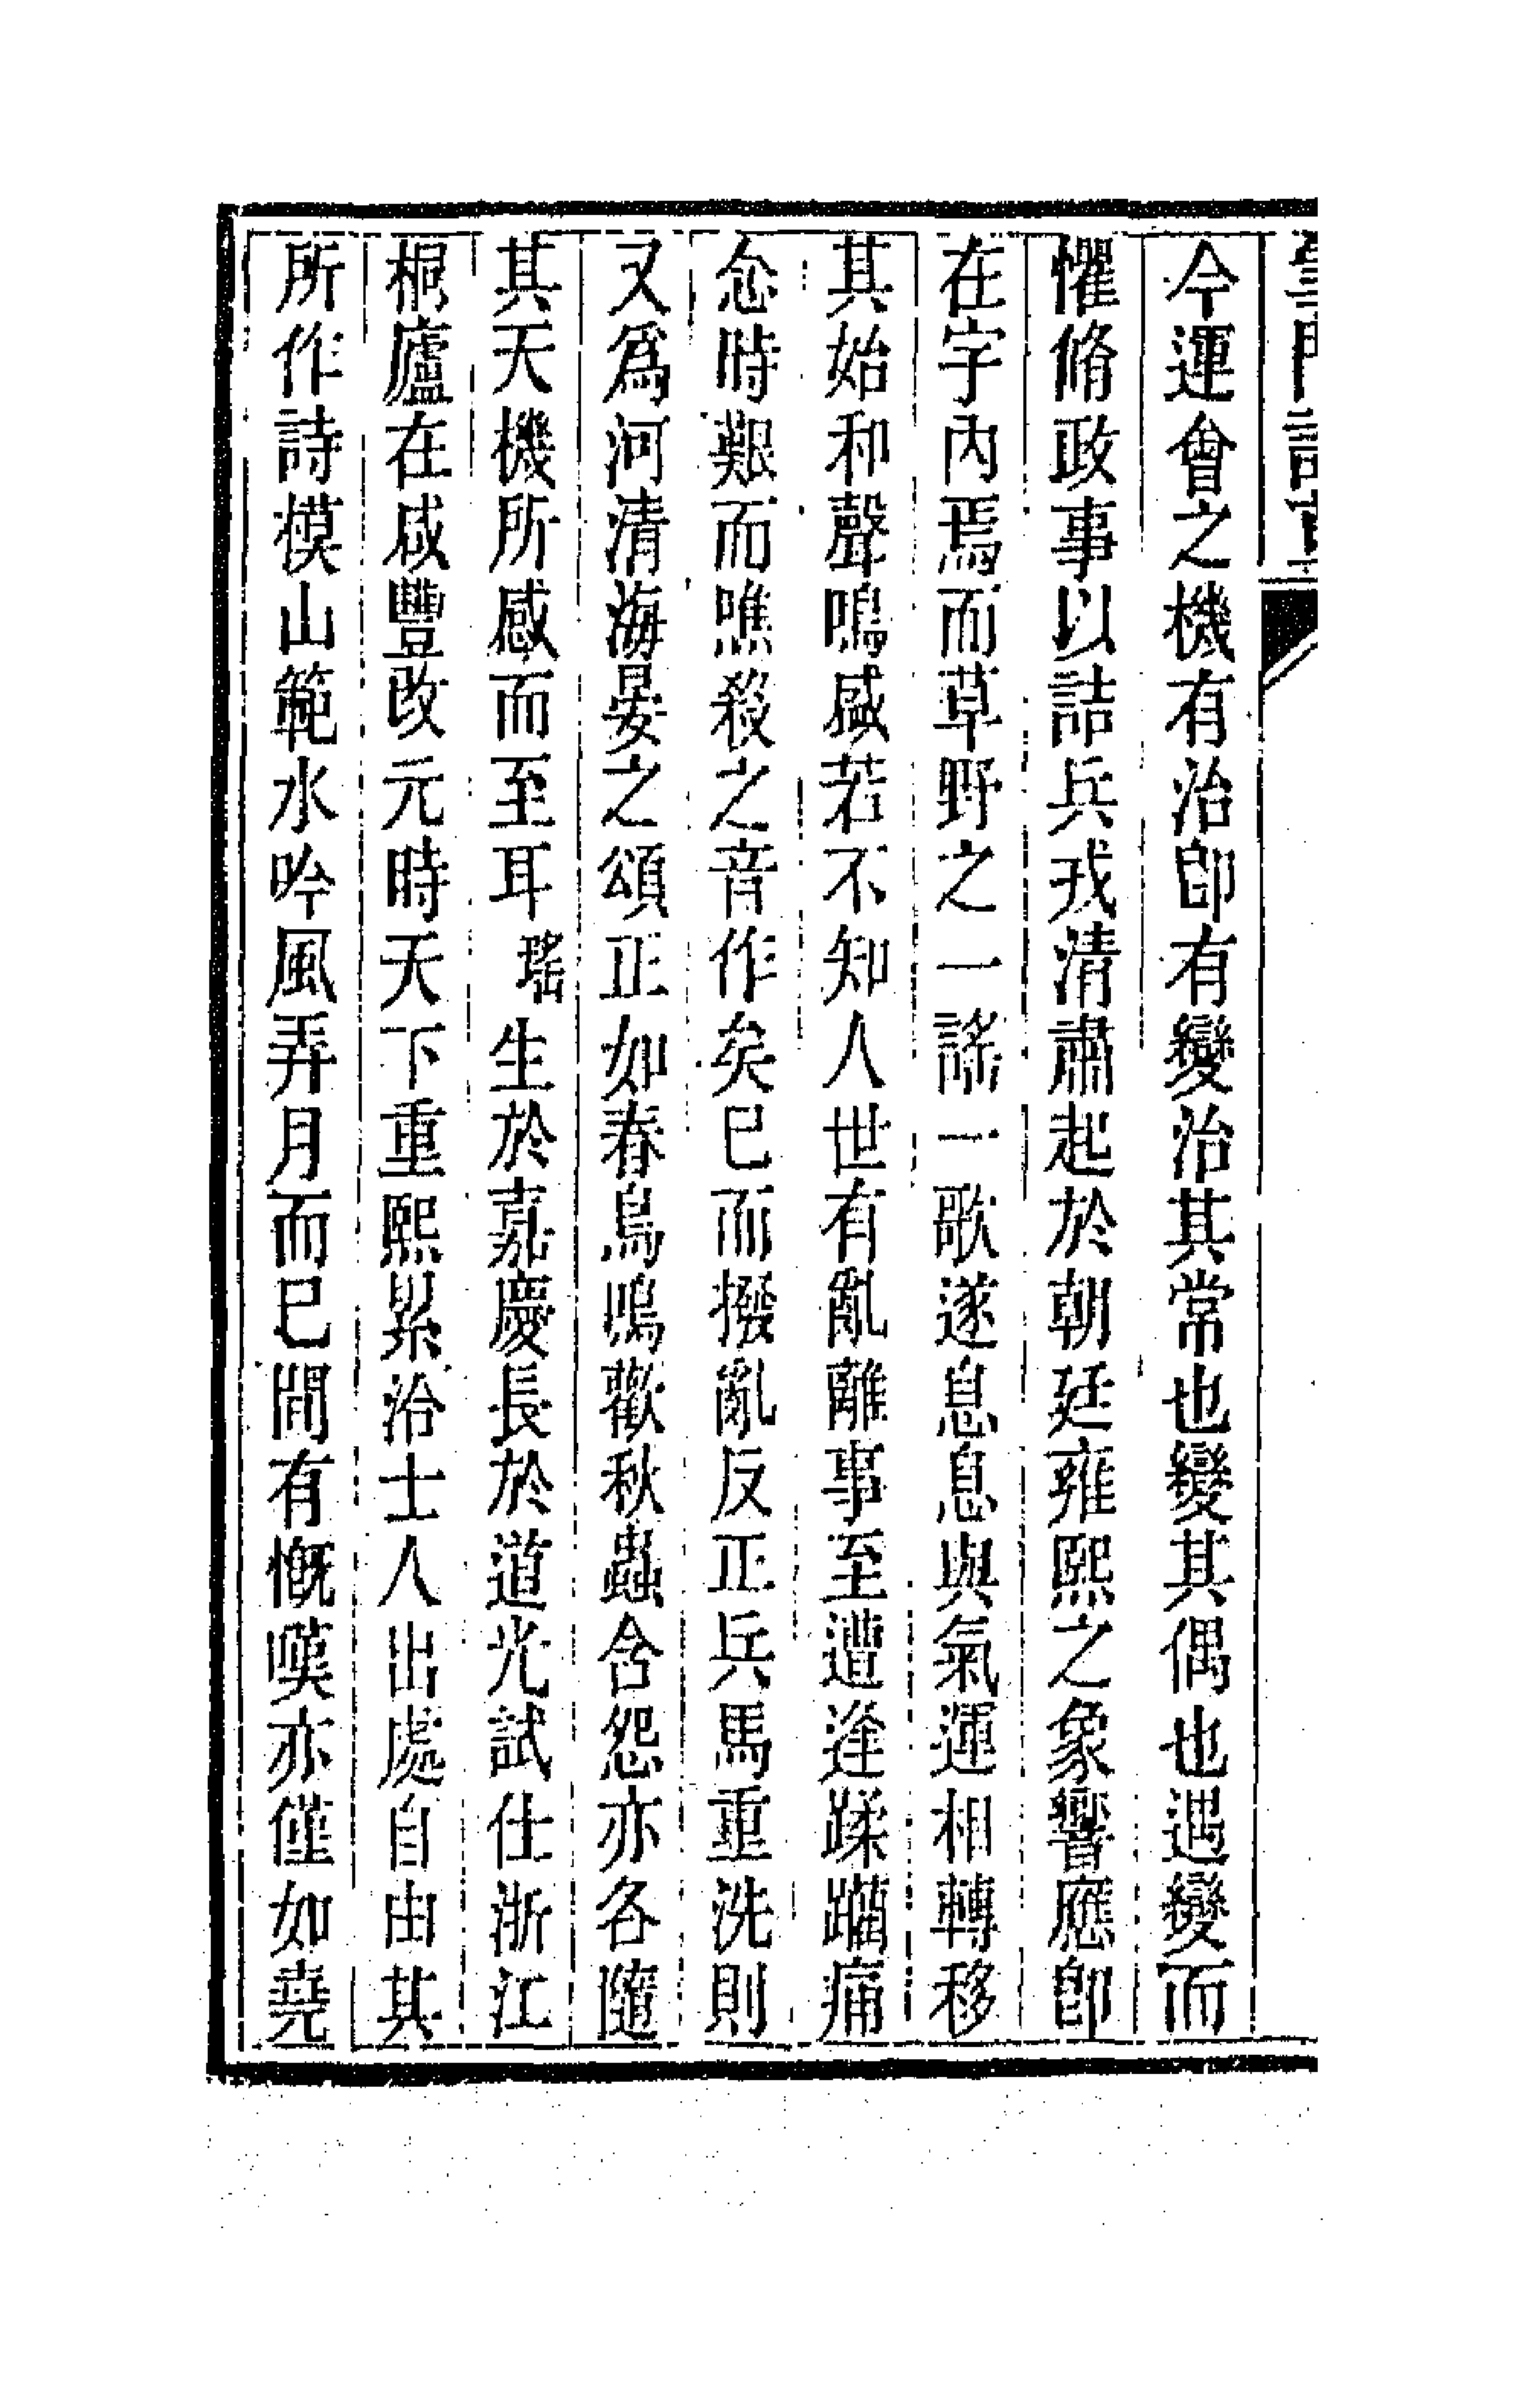 今運會之機有治卽有變治其常也變其偶也遇變而
懼脩政事以詰兵戎清肅起於朝廷雍熙之象響應卽
在宇內焉而草野之一謠一歌遂息息與氣運相轉移
其始和聲鳴盛若不知人世有亂離事至遭逢蹂躪痛
念時艱而噍殺之音作矣已而撥亂反正兵馬重洗則
又爲河清海晏之頌正如春鳥鳴歡秋蟲含怨亦各隨
其天機所感而至耳瑤生於嘉慶長於道光試仕浙江
桐廬在咸豐改元時天下重熙累洽士人出處自由其
所作詩模山範水吟風弄月而已間有慨嘆亦僅如堯